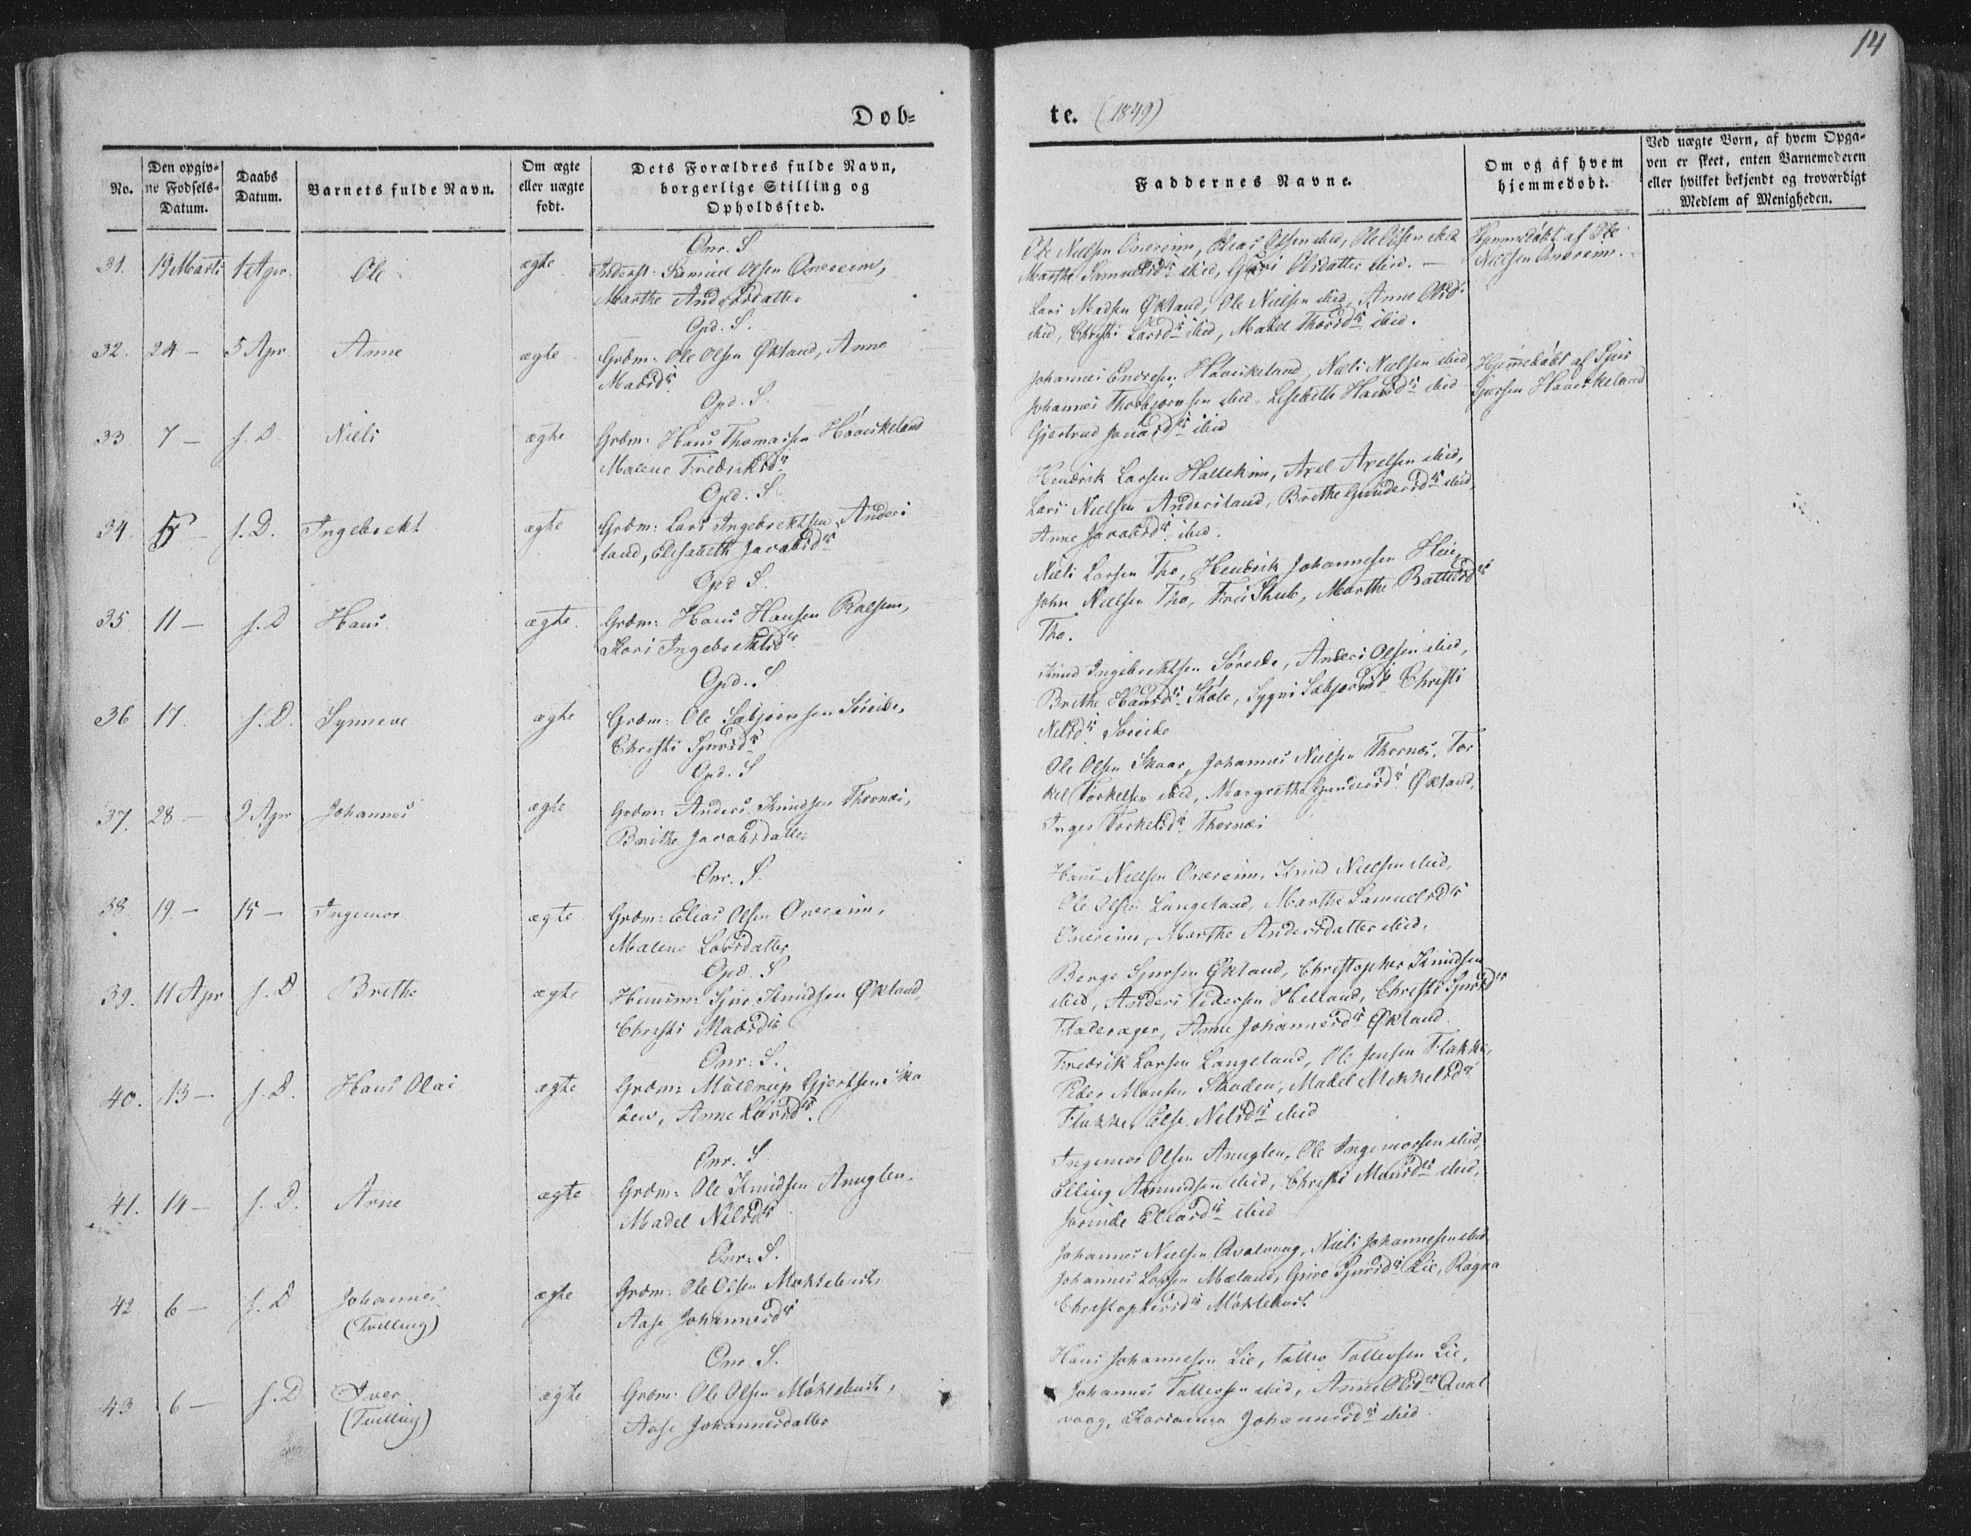 14
Døb=
te. (1849)
No.
Den opgiv=
ne Fødsels=
Datum.
Daabs
Datum.
Barnets fulde Navn.
Om ægte
eller uægte
født.
Dets Forældres fulde Navn,
borgerlige Stilling og
Opholdssted.
Faddernes Navne.
Om og af hvem
hjemmedøbt.
Ved uægte Børn, af hvem Opga=
ven er skeet, enten Barnemoderen
eller hvilket bekjendt og troværdigt
Medlem af Menigheden.
31. 19 Marts 1 Apr. Ole ægte
Onr. S
Samuel Olsen Onereim,
Marthe Andersdatter
Ole Nielsen Onereim, Elias Olsen ibid, Ole Olsen ibid
Marthe Samuelsd. ibid, Guri Olsdatter ibid. —
Hjemmedøbt af Ole
Nielsen Onereim.
32. 24 — 5 Apr. Anne ægte
Opd. S.
Grdm: Ole Olsen Økland, Anne
Madsd.
Lars Madsen Økland, Ole Nielsen ibid, Anne Olsd.
ibid, Christi Larsd. ibid, Madel Thorsd. ibid.
33. 7 — s. D. Niels ægte
Opd. S.
Grdm: Hans Thomassen Haaviskeland
Malene Fredriksd.
Johannes Endresen Haaviskeland, Niels Nielsen ibid,
Johannes Thorbjørnsen ibid. Lisbeth Hansd. ibid
Gjertrud Jonasd. ibid
Hjemmedøbt af Sjur
Sjursen Haaviskeland
34. 5 — s. D. Ingebrekt ægte
Opd. S.
Grdm: Lars Ingebrektsen Anders
land, Elisabeth Jacobsd.
Hendrik Larsen Hallekim, Axel Axelsen ibid,
Lars Nielsen Andersland, Brithe Gundersd. ibid,
Anne Jacobsd. ibid.
35. 11 — s. D Hans ægte
Opd S.
Grdm: Hans Hansen
Kari Ingebrektsd.
Niels Larsen Tho, Hendrik Johannesen
John Nielsen Tho, Marthe
Tho.
36 17. s. D. Synneve ægte
Opd. S
Grdm: Ole Sæbjørnsen Søreide,
Christi Sjursd.
Knud Ingebrektsen Søreide, Anders Olsen ibid,
Brithe Hansd. Skole, Sygni Christi
Nelsd. Søreide
37. 28 — 9 Apr Johannes ægte
Opd. S
Grdm: Anders Knudsen Thornæs,
Brithe Jacobsdatter
Ole Olsen Skaar, Johannes Nielsen Thornæs, Tor
kel Torkelsen ibid, Margrethe Gundersd. Økland,
Inger Torkelsd. Thornæs
38. 19. — 15 — Ingemor ægte
Onr. S.
Grdm: Elias Olsen Onereim,
Malene Larsdatter
Hans Nielsen Onereim, Knud Nielsen ibid,
Ole Olsen Langeland, Marthe Samuelsd.
Onereim, Marthe Andersdatter ibid.
39. 11 Apr s. D Brithe ægte
Opd. S
Huusm: Sjur Knudsen Økland,
Christi Madsd.
Berge Sjursen Økland, Christopher Knudsen
ibid, Anders Pedersen Helland, Christi Sjursd.
Fladerager, Anne Johannesd. Økland.
40. 13 — s. D. Hans Olai ægte
Onr: S.
Grdm: Gjertsen Ska
den, Anne Larsd.
Fredrik Larsen Langeland, Ole Jensen Flakke,
Peder Monsen Skaden, Madel Mikkelsd.
Flakke, Else Nelsd. ibid
41. 14 — s. D. Arne ægte
Onr. S
Grdm: Ole Knudsen Anuglen,
Madel Nelsd.
Ingemor Olsen Anuglen, Ole Ingemorsen ibid,
Elling Amundsen ibid, Christi Monsd. ibid,
Jorinde Eliasd. ibid
42. 6 — s. D Johannes
(Tvilling) ægte
Onr: S.
Grdm: Ole Olsen Møklebust,
Aase Johannesd.
Johannes Nielsen Qvalvaag, Niels Johannesen ibid
Johannes Larsen Mæland, Guro Sjursd. Lie, Ragna
Christophersd. Møklebust.
43. 6 — s. D Iver
(Tvilling) ægte
Onr. S.
Grdm: Ole Olsen Møklebust,
Aase Johannesdatter
Hans Johannesen Lie, Tollev Tollevsen Lie,
Johannes Tollevsen ibid, Anne Olsd. Qval
vaag, Karianna Johannesd. ibid